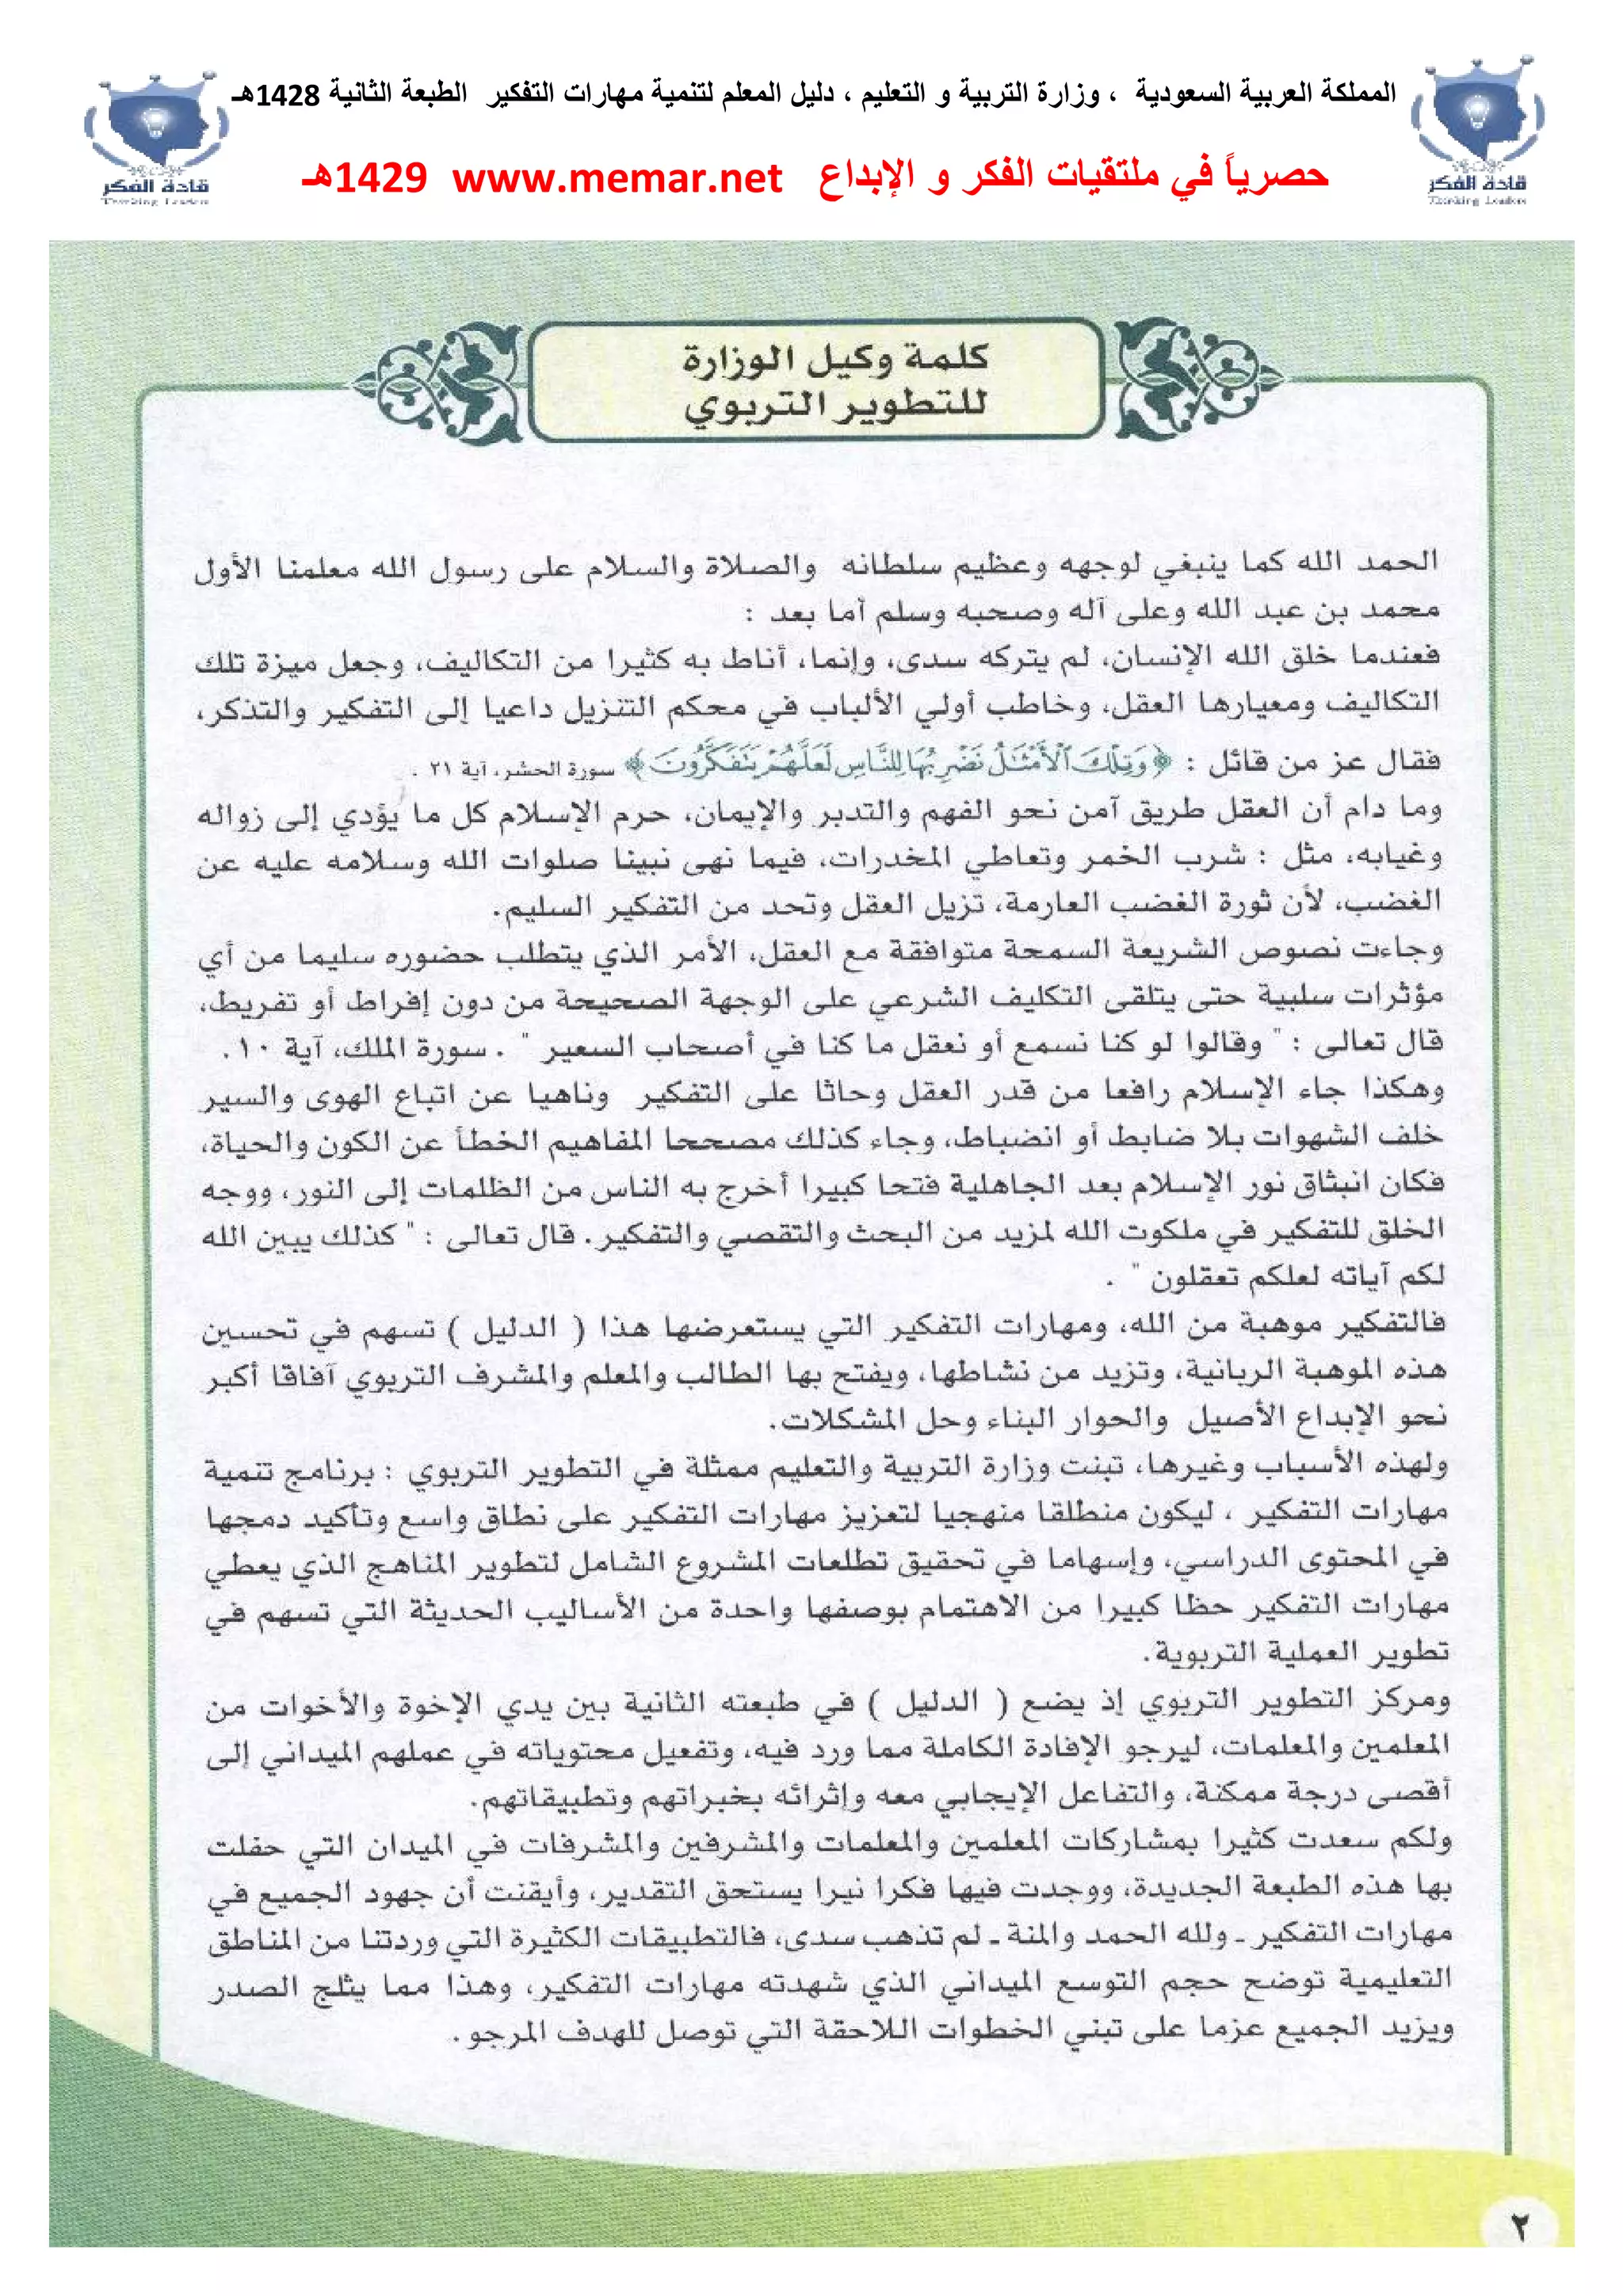 المملكة العربية السعودية ، وزارة التربية و التعليم ، دليل المعلم لتنمية مهارات التفكير الطبعة الثانية 1428هـ
حصرياً في ملتقيات الفكر و الإبداع www.memar.net 1429هـ
قادة الفكر
Thinking Leaders
قادة الفكر
Thinking Leaders
كلمة وكيل الوزارة
للتطوير التربوي
الحمد الله كما ينبغي لوجهه وعظيم سلطانه والصلاة والسلام على رسول الله معلمنا الأول
محمد بن عبد الله وعلى آله وصحبه وسلم أما بعد :
فعندما خلق الله الإنسان، لم يتركه سدى، وإنما، أناط به كثيرا من التكاليف، وجعل ميزة تلك
التكاليف ومعيارها العقل، وخاطب أولي الألباب في محكم التنزيل داعيا إلى التفكير والتذكر،
فقال عز من قائل : ﴿ وَتِلْكَ ٱلْأَمْثَـٰلُ نَضْرِبُهَا لِلنَّاسِ لَعَلَّهُمْ يَتَفَكَّرُونَ ﴾ سورة الحشر، آية ٢١ .
وما دام أن العقل طريق آمن نحو الفهم والتدبر والإيمان، حرم الإسلام كل ما يؤدي إلى زواله
وغيابه، مثل : شرب الخمر وتعاطي المخدرات، فيما نهى نبينا صلوات الله وسلامه عليه عن
الغضب، لأن ثورة الغضب العارمة، تزيل العقل وتحد من التفكير السليم.
وجاءت نصوص الشريعة السمحة متوافقة مع العقل، الأمر الذي يتطلب حضوره سليما من أي
مؤثرات سلبية حتى يتلقى التكليف الشرعي على الوجهة الصحيحة من دون إفراط أو تفريط،
قال تعالى : " وقالوا لو كنا نسمع أو نعقل ما كنا في أصحاب السعير " . سورة الملك، آية ١٠ .
وهكذا جاء الإسلام رافعا من قدر العقل وحاثا على التفكير وناهيا عن اتباع الهوى والسير
خلف الشهوات بلا ضابط أو انضباط، وجاء كذلك مصححا المفاهيم الخطأ عن الكون والحياة،
فكان انبثاق نور الإسلام بعد الجاهلية فتحا كبيرا أخرج به الناس من الظلمات إلى النور، ووجه
الخلق للتفكير في ملكوت الله لمزيد من البحث والتقصي والتفكير. قال تعالى : " كذلك يبين الله
لكم آياته لعلكم تعقلون " .
فالتفكير موهبة من الله، ومهارات التفكير التي يستعرضها هذا ( الدليل ) تسهم في تحسين
هذه الموهبة الربانية، وتزيد من نشاطها، ويفتح بها الطالب والمعلم والمشرف التربوي آفاقا أكبر
نحو الإبداع الأصيل والحوار البناء وحل المشكلات.
ولهذه الأسباب وغيرها، تبنت وزارة التربية والتعليم ممثلة في التطوير التربوي : برنامج تنمية
مهارات التفكير ، ليكون منطلقا منهجيا لتعزيز مهارات التفكير على نطاق واسع وتأكيد دمجها
في المحتوى الدراسي، وإسهاما في تحقيق تطلعات المشروع الشامل لتطوير المناهج الذي يعطي
مهارات التفكير حظا كبيرا من الاهتمام بوصفها واحدة من الأساليب الحديثة التي تسهم في
تطوير العملية التربوية.
ومركز التطوير التربوي إذ يضع ( الدليل ) في طبعته الثانية بين يدي الإخوة والأخوات من
المعلمين والمعلمات، ليرجو الإفادة الكاملة مما ورد فيه، وتفعيل محتوياته في عملهم الميداني إلى
أقصى درجة ممكنة، والتفاعل الإيجابي معه وإثرائه بخبراتهم وتطبيقاتهم.
ولكم سعدت كثيرا بمشاركات المعلمين والمعلمات والمشرفين والمشرفات في الميدان التي حفلت
بها هذه الطبعة الجديدة، ووجدت فيها فكرا نيرا يستحق التقدير، وأيقنت أن جهود الجميع في
مهارات التفكير - ولله الحمد والمنة - لم تذهب سدى، فالتطبيقات الكثيرة التي وردتنا من المناطق
التعليمية توضح حجم التوسع الميداني الذي شهدته مهارات التفكير، وهذا مما يثلج الصدر
ويزيد الجميع عزما على تبني الخطوات اللاحقة التي توصل للهدف المرجو.
٢